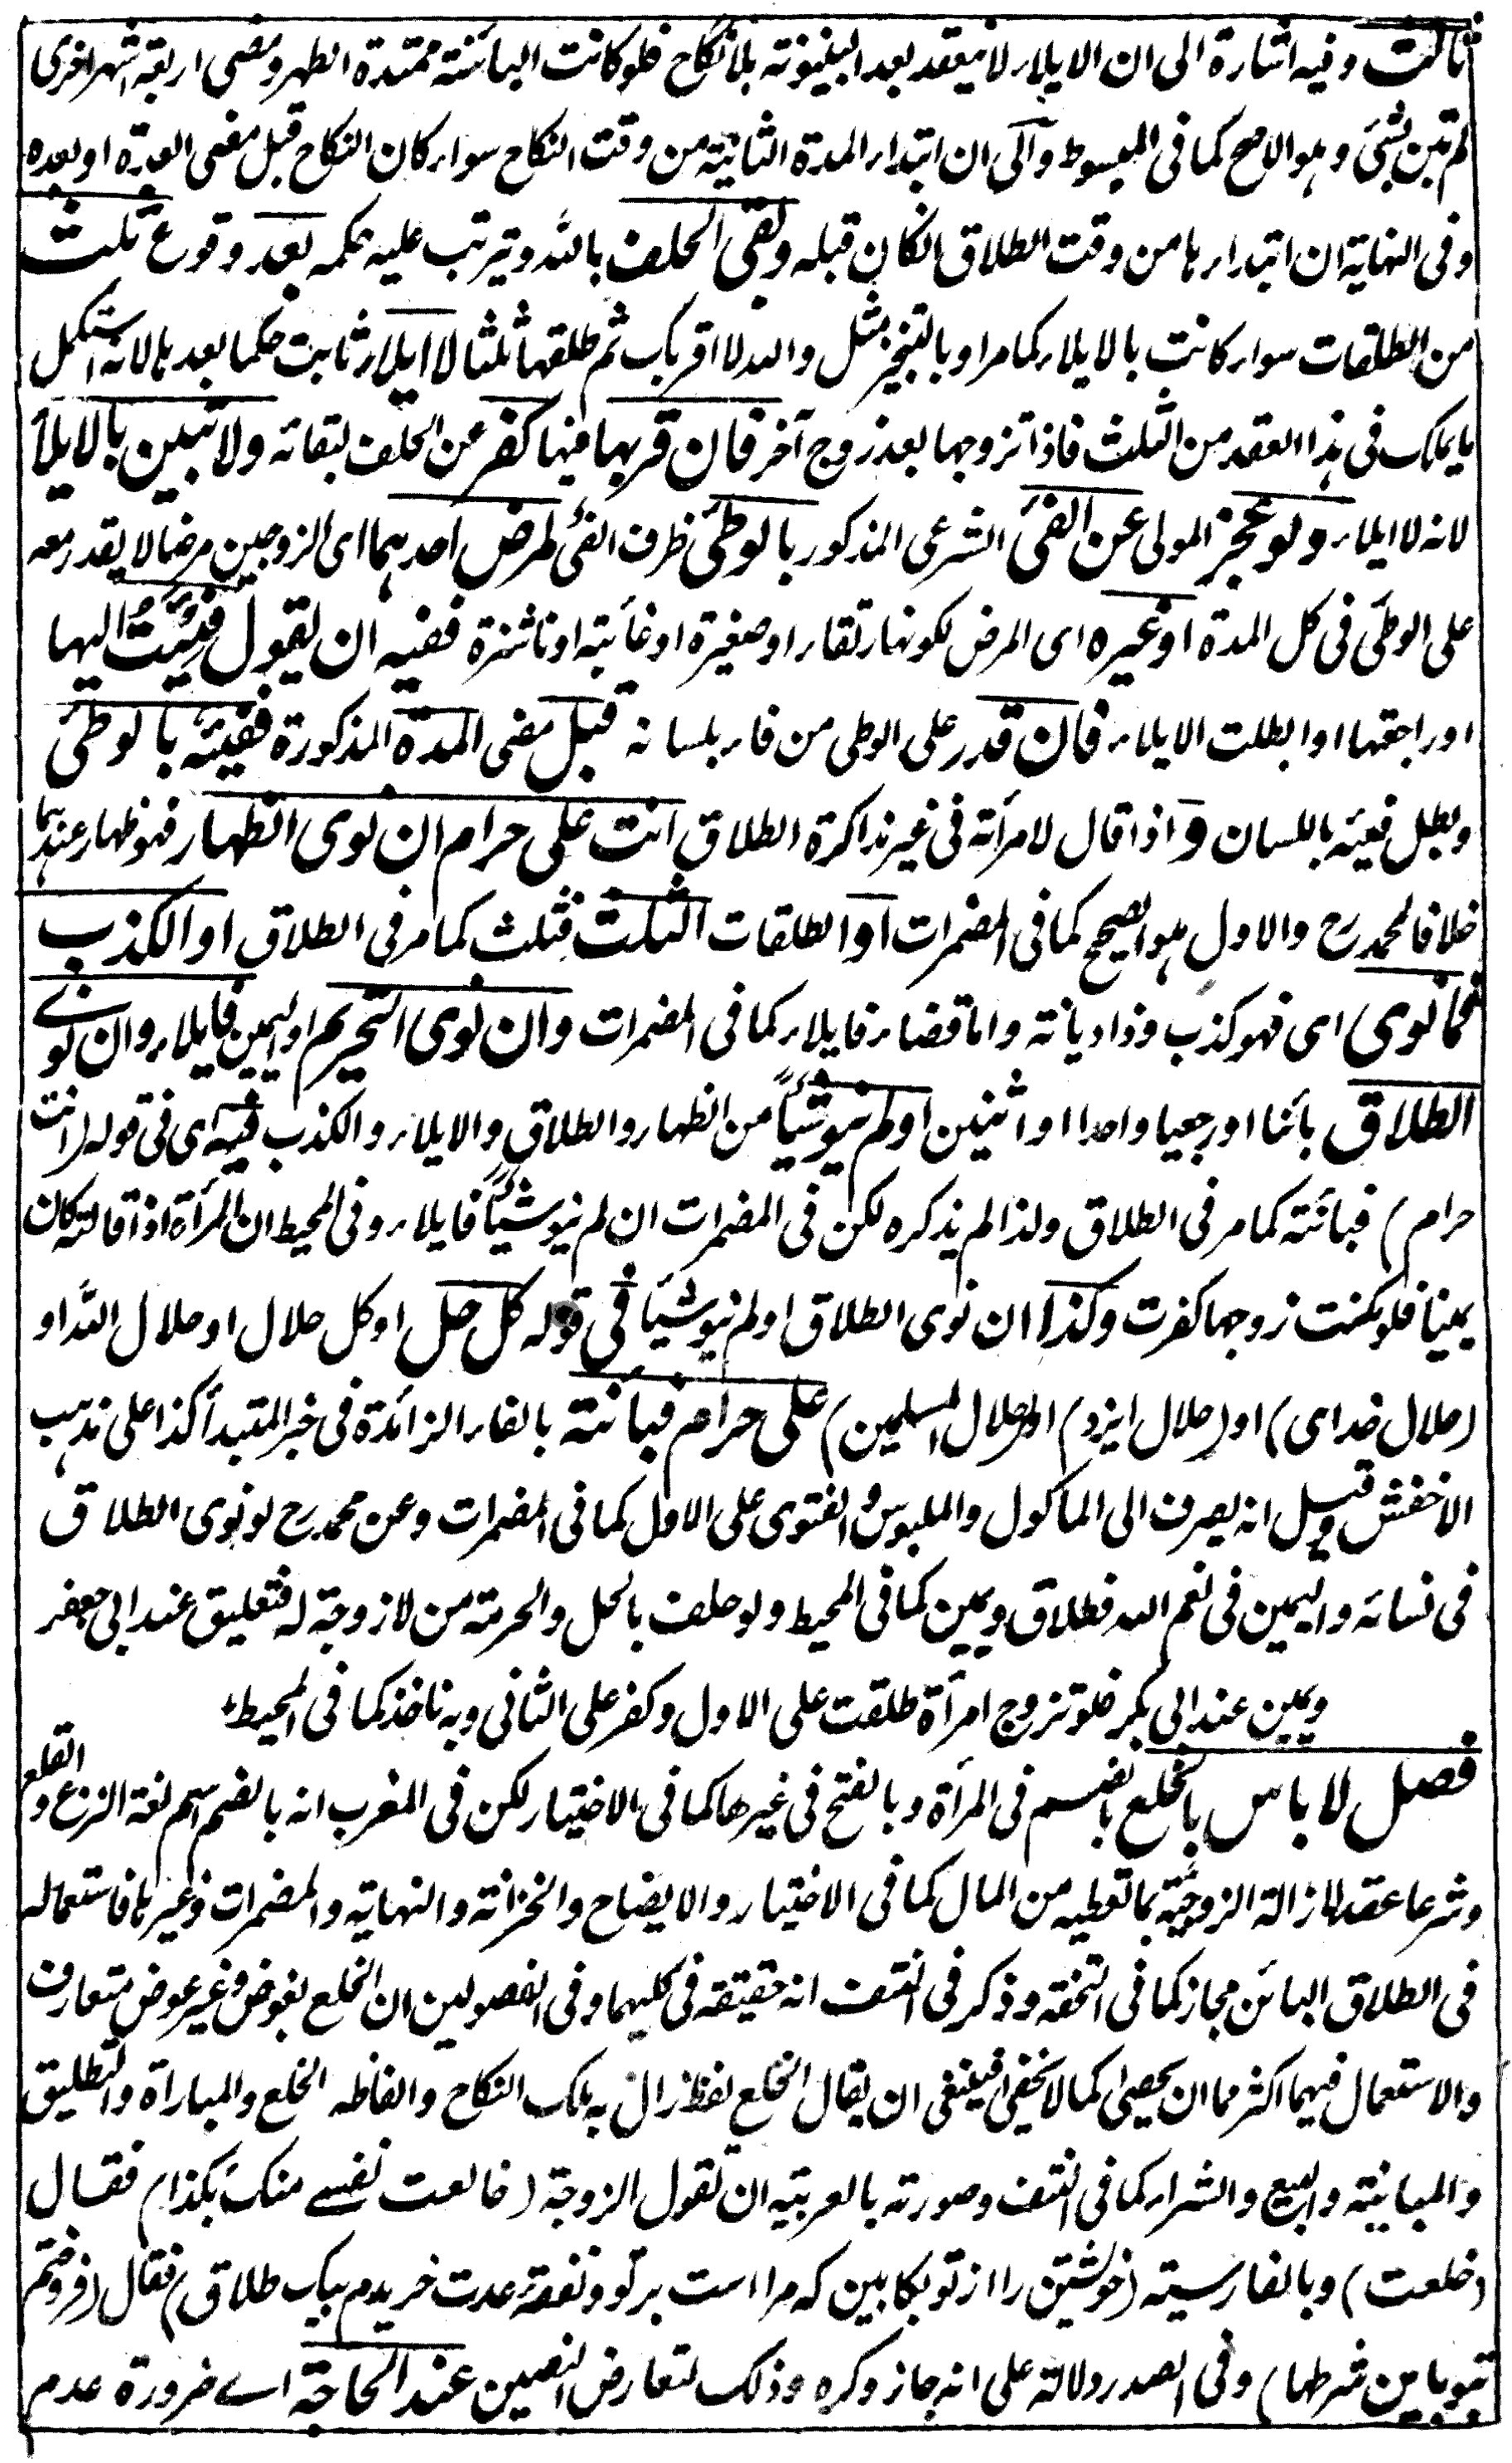 ثالث وفيه اشارة الى ان الايلاء لا ينعقد بعد البينونة بلا نكاح فلو كانت البائنة ممتدة الطهر ومضى اربعة اشهر اخرى
لم تبن بشئ وهو الاصح كما فى المبسوط وآلى ان ابتداء المدة الثانية من وقت النكاح سواء كان النكاح قبل مضى العدة او بعده
وفى النهاية ان ابتداءها من وقت الطلاق ان كان قبله وبقى الحلف بالله ويترتب عليه حكمه بعد وقوع ثلث
من الطلقات سواء كانت بالايلاء كما مر او بالتنجيز مثل والله لا اقربك ثم طلقها ثلثا لا ايلاء ثابت حكما بعدها لانه استكمل
ما يملك فى هذا العقد من الثلث فاذا تزوجها بعد زوج آخر فان قربها فيها كفر عن الحلف لبقائه ولا تبين بالايلاء
لانه لا ايلاء ولو عجز المولى عن الفئ الشرعى المذكور بالوطئ ظرف الفئ لمرض احدهما اى الزوجين مرضا لا يقدر معه
على الوطئ فى كل المدة او غيره اى المرض لكونها رتقاء او صغيرة او غائبة او ناشزة ففيه ان يقول فِئْتُ اليها
او راجعتها او ابطلت الايلاء فان قدر على الوطى من فاء بلسانه قبل مضى المدة المذكورة ففيئه بالوطئ
وبطل فيئه باللسان و اذا قال لامرأته فى غير مذاكرة الطلاق انت على حرام ان نوى الظهار فهو ظهار عندهما
خلافا لمحمد رح والاول هو الصحيح كما فى المضمرات او الطلقات الثلث فثلث كما مر فى الطلاق او الكذب
فما نوى اى فهو كذب وذا ديانة واما قضاء فايلاء كما فى المضمرات وان نوى التحريم او اليمين فايلاء وان نوے
الطلاق بائنا او رجعيا واحدا او اثنين او لم ينو شيئاً من الظهار والطلاق والايلاء والكذب فيه اى فى قوله (انت
حرام) فبائنة كما مر فى الطلاق ولذا لم يذكره لكن فى المضمرات ان لم ينو شيئاً فايلاء وفى المحيط ان المرأة اذا قالته كان
يمينا فلو مكنت زوجها كفرت وكذا ان نوى الطلاق او لم ينو شيئا فى قوله كل حل او كل حلال او حلال الله او
(حلال خداى) او (حلال ايزد) او (حلال المسلمين) على حرام فبائنة بالفاء الزائدة فى خبر المبتدأ كذا على مذهب
الاخفش وقيل انه يصرف الى الماكول والملبوس والفتوى على الاول كما فى المضمرات وعن محمد رح لو نوى الطلاق
فى نسائه واليمين فى نعم الله فطلاق ويمين كما فى المحيط ولو حلف بالحل والحرمة من لا زوجة له فتعليق عند ابى جعفر
ويمين عند ابى بكر فلو تزوج امرأة طلقت على الاول وكفر على الثانى وبه ناخذ كما فى المحيط٠
فصل لا باس بالخلع بالضم فى المرأة وبالفتح فى غيرها كما فى الاختيار لكن فى المغرب انه بالضم اسم لغة النزع والقلع
وشرعا عقد لازالة الزوجية بما تعطيه من المال كما فى الاختيار والايضاح والخزانة والنهاية والمضمرات وغيرها فاستعماله
فى الطلاق البائن مجاز كما فى التحفة وذكر فى النتف انه حقيقة فى كليهما وفى الفصولين ان الخلع بعوض وغير عوض متعارف
والاستعمال فيهما اكثر مما ان يحصى كما لا يخفى فينبغى ان يقال الخلع لفظ زال به ملك النكاح والفاظه الخلع والمباراة والتطليق
والمباينة والبيع والشراء كما فى النتف وصورته بالعربية ان تقول الزوجة (خالعت نفسے منك بكذا) فقال
(خلعت) وبالفارسية (خويشتن را از تو بكابين كه مرا است بر تو ونفقهٔ عدت خريدم بيك طلاق) فقال (فروختم
بتو باين شرطها) وفى الصدر دلالة على انه جاز وكره وذلك لتعارض النصين عند الحاجة اے ضرورة عدم